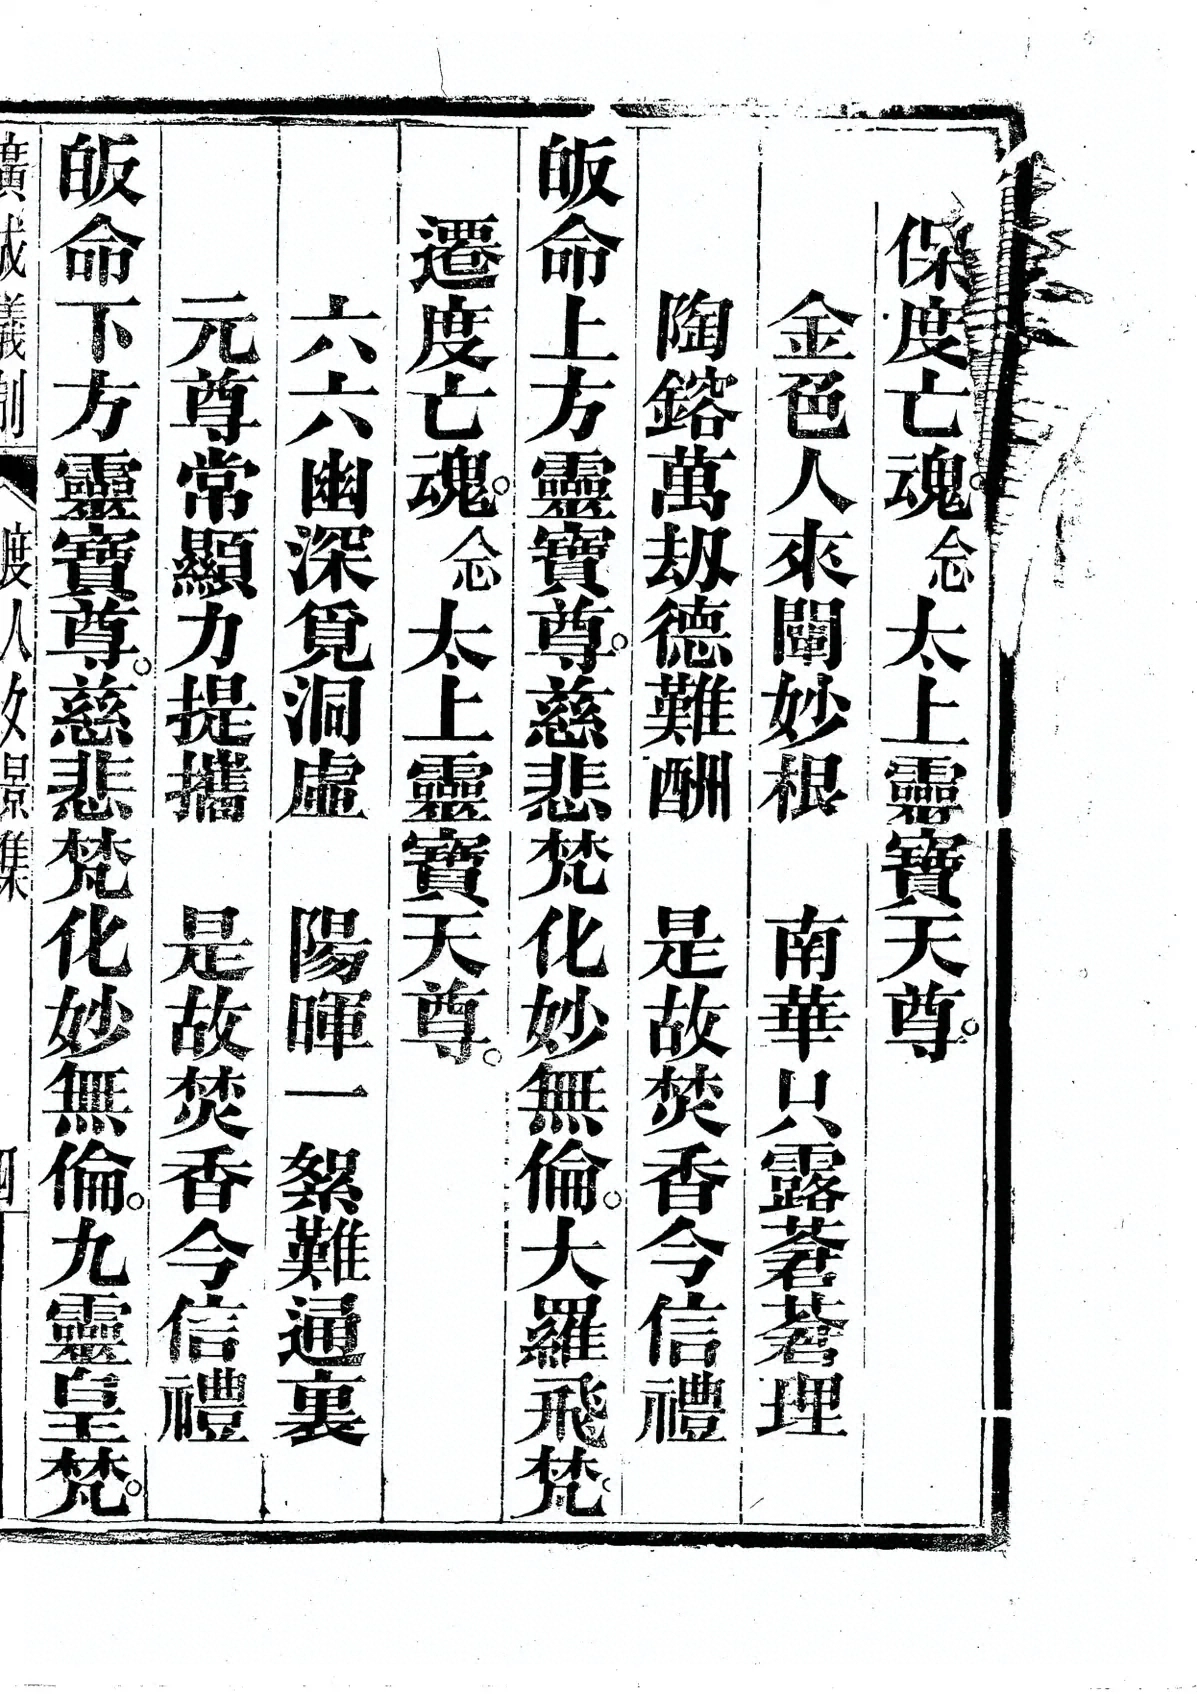 保度亡魂。念太上靈寶天尊。
金色人來闡妙根　南華只露蒼蒼理
陶鎔萬劫德難酬　是故焚香今信禮
皈命上方靈寶尊。慈悲梵化妙無倫。大羅飛梵。
遷度亡魂。念太上靈寶天尊。
六六幽深覓洞虛　陽暉一絮難通裏
元尊常顯力提攜　是故焚香今信禮
皈命下方靈寶尊。慈悲梵化妙無倫。九靈皇梵。
廣成儀制　度人放景集　四